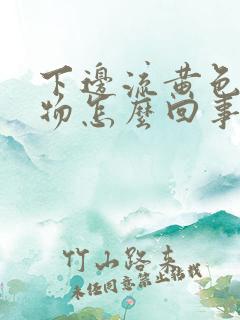 下邊流黄色
物怎麼回事
竹山路来
未经同意禁止转载